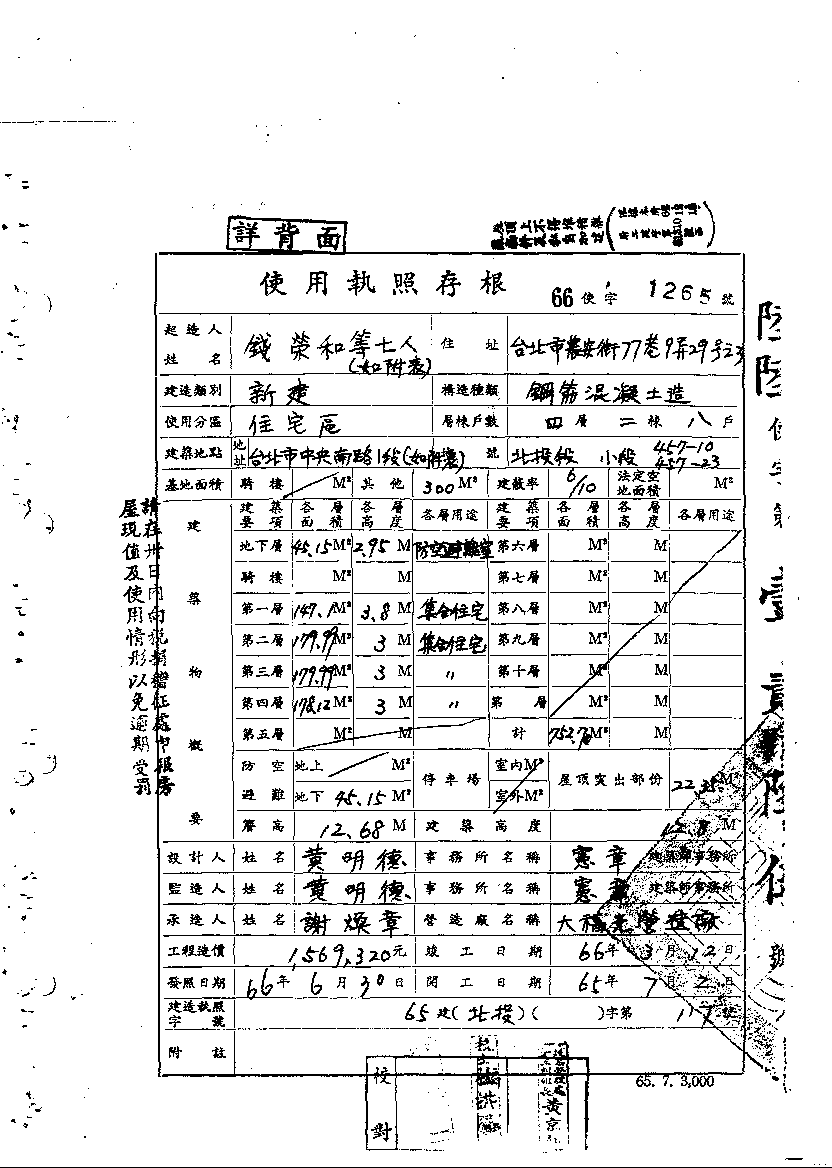 詳背面
使用執照存根 66使字 1265 號
起造人姓名 錢榮和等七人(如附表) 住址 台北市農安街77巷9弄29号
建造類別 新建 構造種類 鋼筋混凝土造
使用分區 住宅區 層棟戶數 四層 二棟 八戶
建築地點 地址 台北市中央南路1段(如附表) 號 北投段 小段 457-10 457-23
基地面積 騎樓 M² 其他 300 M² 建蔽率 6/10 法定空地面積 M²
建築物概要
建築要項 各層面積 各層高度 各層用途 建築要項 各層面積 各層高度 各層用途
地下層 45.15 M² 2.95 M 防空避難室 第六層 M² M
騎樓 M² M 第七層 M² M
第一層 147.1 M² 3.8 M 集合住宅 第八層 M² M
第二層 179.99 M² 3 M 集合住宅 第九層 M² M
第三層 179.99 M² 3 M 〃 第十層 M² M
第四層 178.12 M² 3 M 〃 第 層 M² M
第五層 M² M 計 M²
防空避難 地上 M² 地下 45.15 M² 停車場 室內M² 室外M² 屋頂突出部份 M²
簷高 12.68 M 建築高度 M
設計人 姓名 黃明德 事務所名稱 憲章 建築師事務所
監造人 姓名 黃明德 事務所名稱 憲章 建築師事務所
承造人 姓名 謝煥章 營造廠名稱
工程造價 1,569,320元 竣工日期 66年3月12日
發照日期 66年6月30日 開工日期 65年7月2日
建造執照字號 65建(北投)( )字第 117 號
附註
65. 7. 3,000
校對
請在卅日內向稅捐稽征處申報房屋現值及使用情形以免逾期受罰